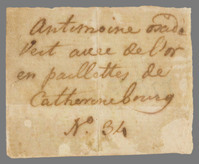 Antimoine oxidé
Vert avec de l'or
en paillettes de
Catherinebourg
N° 34